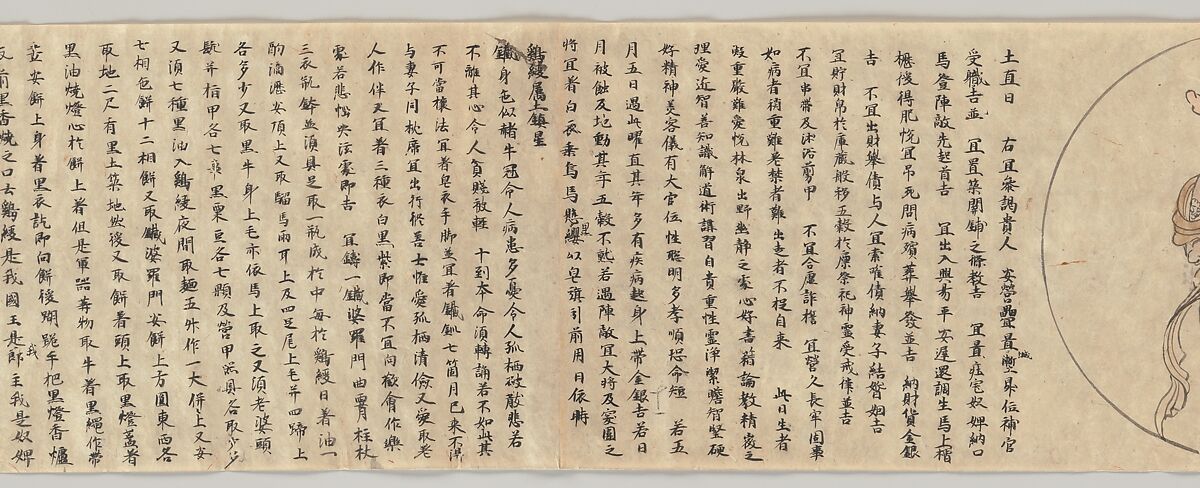 土直日　右宜參謁貴人　安營壘置城塹昇位補官
受職吉並　宜置築開鋪之條教吉　宜買庄宅奴婢納口
馬登陣敵先起首吉　宜出入興易平安遲還調生馬上槽
櫪後得肥悅宜吊死問病殯葬舉發並吉　納財貨金銀
吉　不宜出財舉債与人宜索唯債納妻子結婚姻吉
宜貯財帛於庫藏般移五穀於廩祭祀神靈受戒律並吉
不宜串帶及沐浴剪甲　不宜合虛詐損　宜營久長牢固事
如病者積重難差禁者難出走者不捉自来　此日生者
敦重嚴難愛悅林泉出野幽靜之處心好書籍論教精密之
理愛近智善知識解道術講習自貴重性靈淨潔膽智堅硬
好精神美容儀有大官位性聰明多孝順恐命短　若五
月五日遇此曜直其年多有疾病趂身上帶金銀吉若日
月被蝕及地動其年五穀不熟若遇陣敵宜大將及家國之
將宜着白衣乘烏馬悲纓以皂旗引前用日依時
鷄緩属土鎮星
鐵身色似赭牛冠令人病患多憂令人孤栖破散悲若
不離其心令人貧賤敢輕　十到本命須轉誦若不如此其
不可當禳法宜着皂衣手脚並宜着鐵釧七箇月已来不得
与妻子同枕席宜出行終善士惟愛孤栖清儉又愛取老
人作伴又宜着三種衣白黑紫即當不宜向歡會作樂
處若悲愁哭泣處即吉　宜鑄一鐵婆羅門曲脊柱杖
三衣瓶鉢並須具足取一瓶成於中每於鷄緩日着油一
酌滴瀝安頂上又取騮馬兩耳上及四足尾上毛并四蹄上
各多少又取黑牛身上毛亦依馬上取之又須老婆頭
髭并指甲各七　黑粟豆各七顆及營甲器具各取少多
又須七種黑油入鷄緩夜間取麵五升作一大餅上又安
七相色餅十二相餅又取鐵婆羅門安餅上方圓東西各
取地二尺有黑土築地然後又取餅着頭上取黑燈盞着
黑油燒燈心於餅上着但是軍器等物取牛着黑繩作帶
並安餅上身着黑衣訖即向餅後踟跪手把黑燈香爐
前黑香燒之口云鷄緩是我國王是郎主我是奴婢